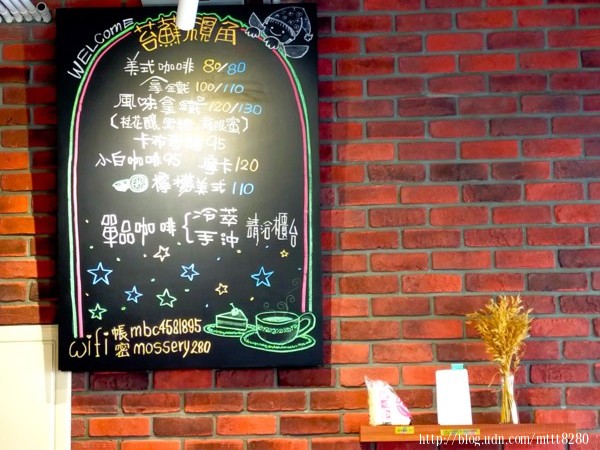 WELCOME
苔蘚視角
美式咖啡 80/80
拿鐵 100/110
風味拿鐵 120/130
(桂花釀、黑糖、蜜)
卡布 95
小白咖啡 95 摩卡 120
檸檬美式 110
單品咖啡 { 冷萃 手沖 請洽櫃台
wifi 帳 mbc4581895
密 mossery280
http://blog.udn.com/mttt8280